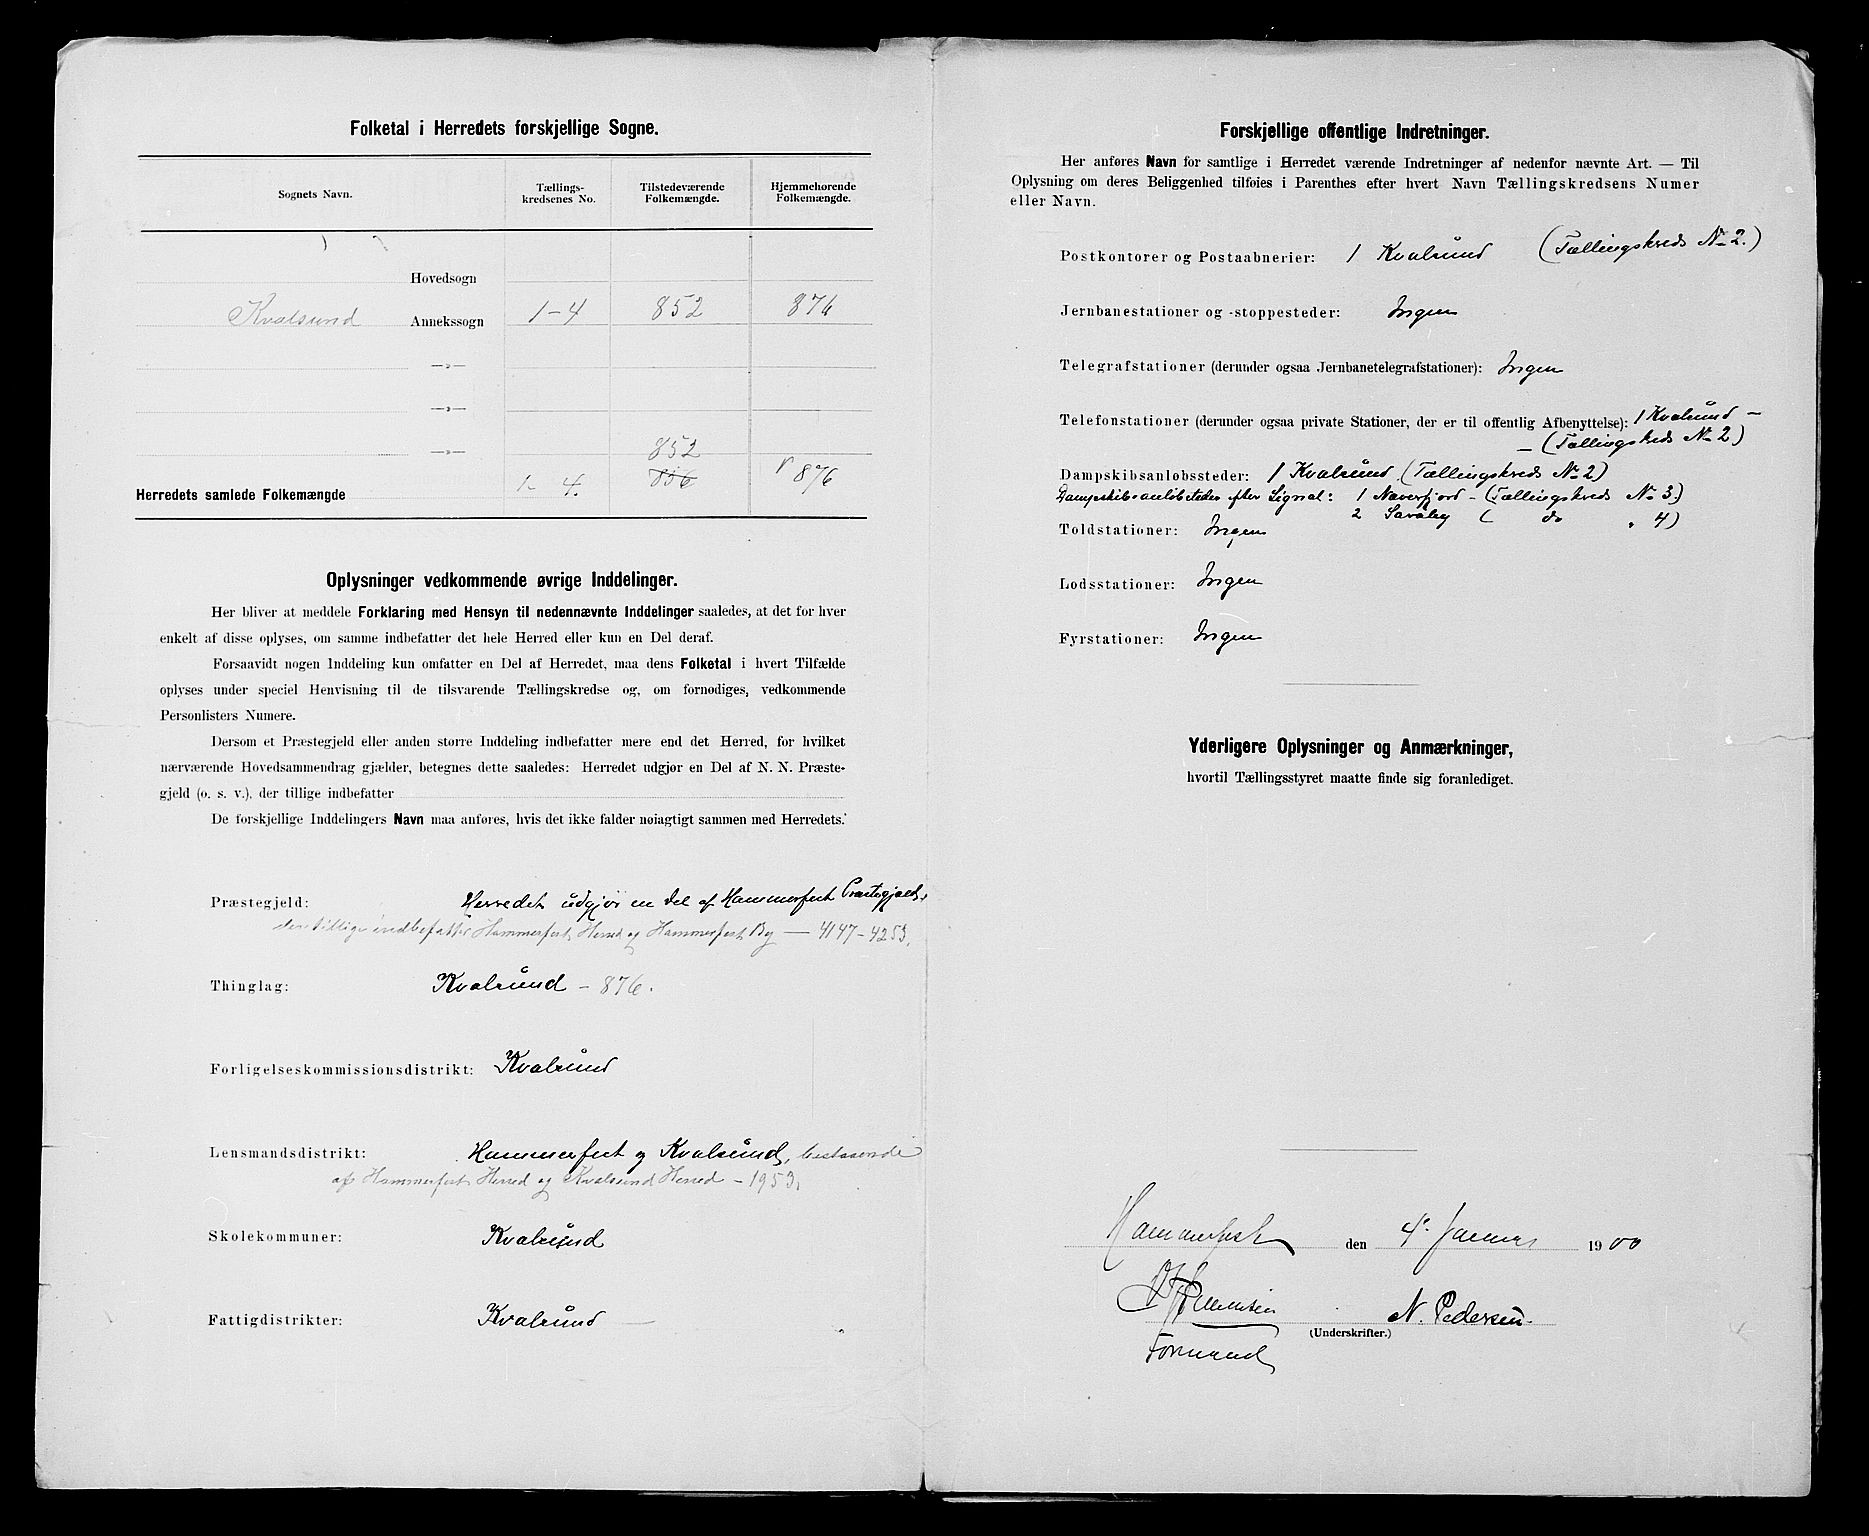 Folketal i Herredets forskjellige Sogne.
Sognets Navn. Tællings-kredsenes No. Tilstedeværende Folkemængde. Hjemmehørende Folkemængde.
Hovedsogn
Kvalsund Annekssogn 1-4 852 876
—„—
—„—
852
—„—
Herredets samlede Folkemængde 1- 4. 856 876
Oplysninger vedkommende øvrige Inddelinger.
Her bliver at meddele Forklaring med Hensyn til nedennævnte Inddelinger saaledes, at det for hver
enkelt af disse oplyses, om samme indbefatter det hele Herred eller kun en Del deraf.
Forsaavidt nogen Inddeling kun omfatter en Del af Herredet, maa dens Folketal i hvert Tilfælde
oplyses under speciel Henvisning til de tilsvarende Tællingskredse og, om fornødiges, vedkommende
Personlisters Numere.
Dersom et Præstegjeld eller anden større Inddeling indbefatter mere end det Herred, for hvilket
nærværende Hovedsammendrag gjælder, betegnes dette saaledes: Herredet udgjør en Del af N. N. Præste-
gjeld (o. s. v.), der tillige indbefatter
De forskjellige Inddelingers Navn maa anføres, hvis det ikke falder nøiagtigt sammen med Herredets.
Præstegjeld: Herredet udgjør en del af Hammerfest Præstegjeld,
der tillige indbefatter Hammerfest Herred og Hammerfest By — 4147-4253.
Thinglag: Kvalsund – 876.
Forligelseskommissionsdistrikt: Kvalsund
Lensmandsdistrikt: Hammerfest og Kvalsund, bestaaende
af Hammerfest Herred og Kvalsund Herred – 1953.
Skolekommuner: Kvalsund
Fattigdistrikter: Kvalsund —
Forskjellige offentlige Indretninger.
Her anføres Navn for samtlige i Herredet værende Indretninger af nedenfor nævnte Art. — Til
Oplysning om deres Beliggenhed tilføies i Parenthes efter hvert Navn Tællingskredsens Numer
eller Navn.
Postkontorer og Postaabnerier: 1 Kvalsund (Tællingskreds No 2.)
Jernbanestationer og -stoppesteder: Ingen
Telegrafstationer (derunder ogsaa Jernbanetelegrafstationer): Ingen
Telefonstationer (derunder ogsaa private Stationer, der er til offentlig Afbenyttelse): 1 Kvalsund –
– (Tællingskreds No 2)
Dampskibsanløbssteder: 1 Kvalsund (Tællingskreds No 2)
Dampskibsanløbsteder efter Signal: 1 Naverfjord – (Tællingskreds No 3.)
2 ( do „ 4)
Toldstationer: Ingen
Lodsstationer: Ingen
Fyrstationer: Ingen
Yderligere Oplysninger og Anmærkninger,
hvortil Tællingsstyret maatte finde sig foranlediget.
Hammerfest den 4. Januar 1900
N. Pedersen.
(Underskrifter.)
Formand